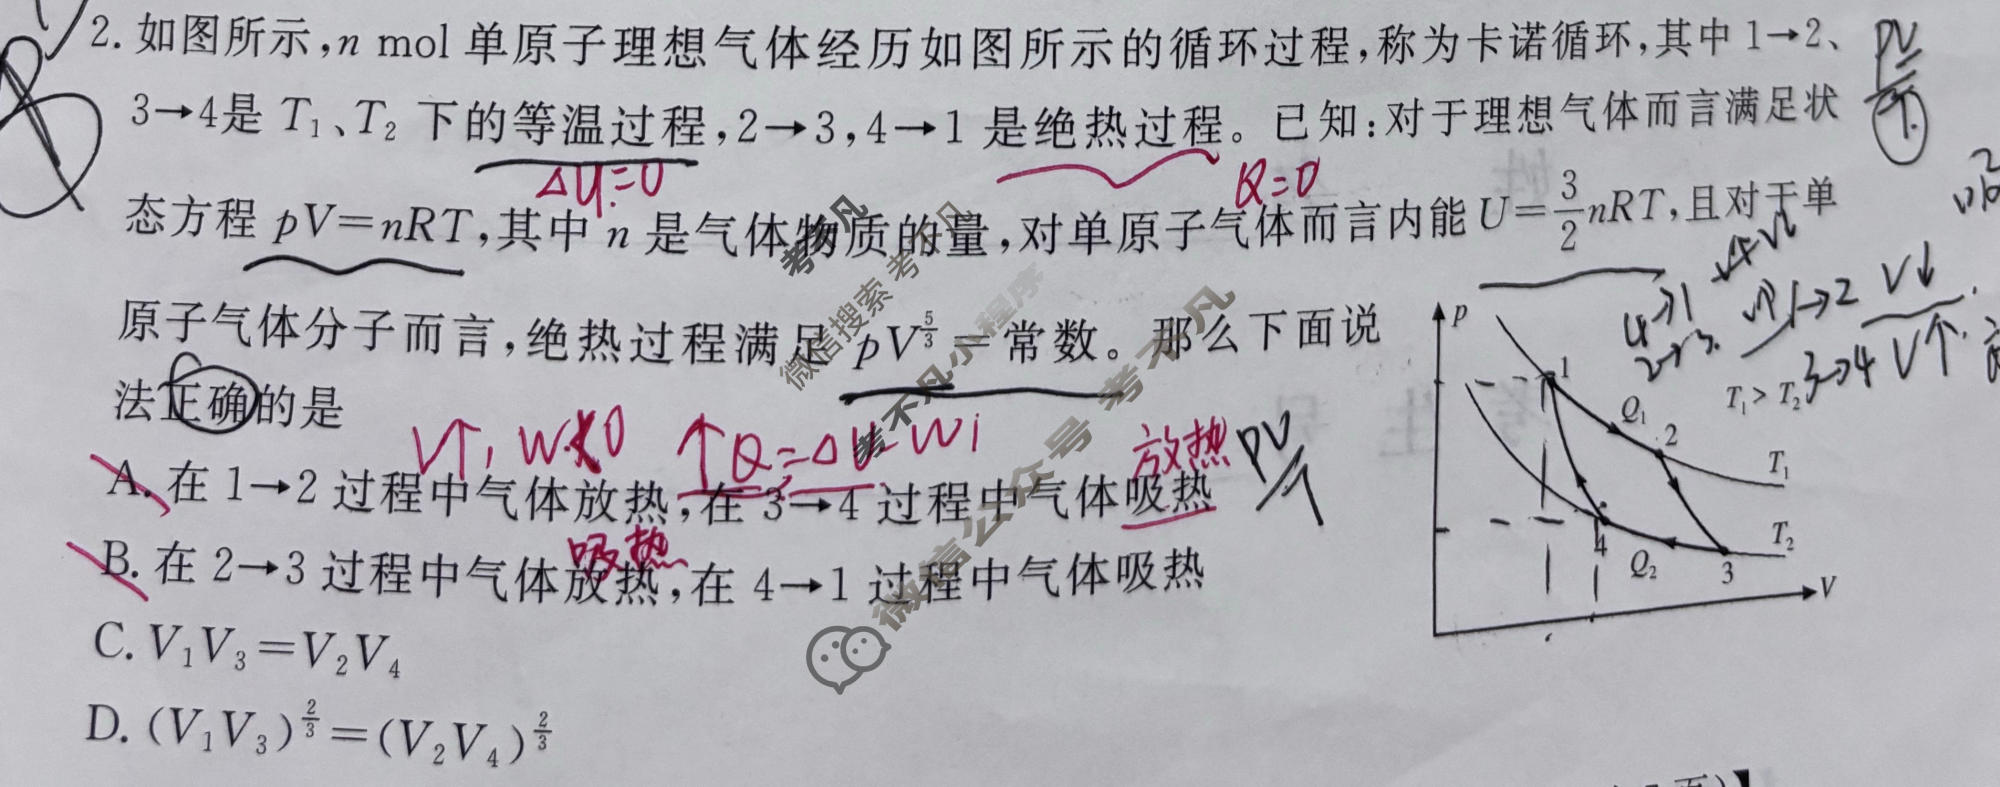 2. 如图所示,n mol 单原子理想气体经历如图所示的循环过程,称为卡诺循环,其中 1→2、
3→4是 T₁、T₂ 下的等温过程,2→3,4→1 是绝热过程。已知:对于理想气体而言满足状
ΔU=0
Q=0
态方程 pV=nRT,其中 n 是气体物质的量,对单原子气体而言内能 U=3/2nRT,且对于单
原子气体分子而言,绝热过程满足 pV^(5/3)=常数。那么下面说
法正确的是
V↑, W<0 ↑Q=ΔU-W↓
放热
A. 在 1→2 过程中气体放热,在 3→4 过程中气体吸热
吸热
B. 在 2→3 过程中气体放热,在 4→1 过程中气体吸热
C. V₁V₃=V₂V₄
D. (V₁V₃)^(2/3)=(V₂V₄)^(2/3)
PV
T
4→1
2→3
1→2 V↓
3→4 V↑
PV
p
1
Q₁
2
T₁>T₂
T₁
4
Q₂
3
T₂
V
考不凡
微信搜索 考不凡
考不凡小程序
微信公众号 考不凡